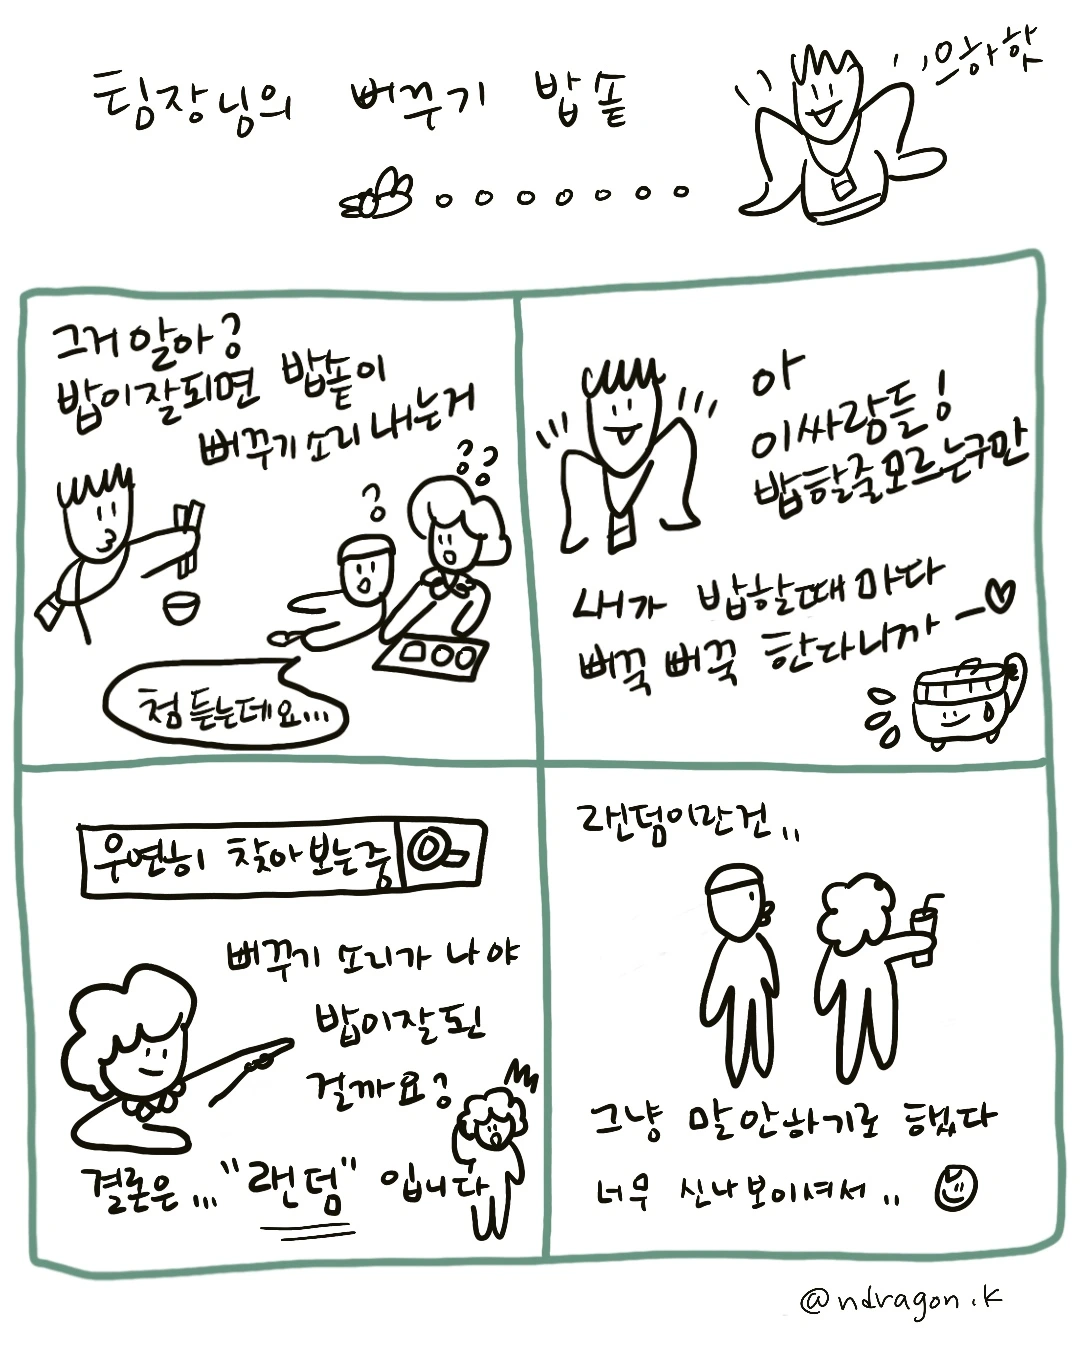 팀장님의 뻐꾸기 밥솥
으하핫
그거 알아?
밥이 잘되면 밥솥이
뻐꾸기 소리 내는거
?
??
첨 듣는데요...
아
이 싸람들!
밥 할줄 모르는구만
내가 밥할때마다
뻐꾹 뻐꾹 한다니까 ㅡ♡
우연히 찾아보는중
뻐꾸기 소리가 나야
밥이 잘 된
걸까요?
결론은... "랜덤" 입니다
랜덤이란건..
그냥 말 안하기로 했다
너무 신나보이셔서..
@ndragon.k